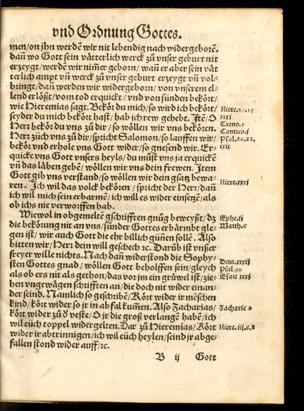 vnd Ordnung Gottes.
men/on jhn werdē wir nit lebendig nach widergeborē.
dañ wo Gott sein vätterlich werck zů vnser geburt nit
erzeygt/werdē wir niṁer geborn/wañ er aber sein vät
terlich ampt vñ werck zů vnser geburt erzeygt vñ vol-
bringt/dañ werden wir widergeborn/von vnserem el-
lend erlößt/vom tod erquickt/vnd von sünden bekört/
wie Hieremias sagt. Bekör du mich/so wird ich bekört/
seyder du mich bekört hast/hab ich rew gehebt. Itē O
Herr bekör du vns zů dir/so wöllen wir vns bekören.
Herr zůch vns zů dir/spricht Salomon/so lauffen wir/
bekör vnd erhole vns Gott wider/so gnesend wir. Er-
quick vns Gott vnsers heyls/du můst vns ja erquickē
vñ das läben gebē/wöllen wir vns dein frewen. Item
Gott gib vns verstand/so wöllen wir dein gsätz bewa-
ren. Ich wil das volck bekören/spricht der Herr/dañ
ich wil mich sein erbarmē/ich wil es wider einsetzē/als
ob ichs nie verworffen hab.
Wiewol in obgemelte gschrifften gnůg beweyßt/dz
die bekörung nit an vns/sunder Gottes erbärmbd gle-
gen ist/wie auch Gott die ehr billich günnen sölle. Also
bitten wir/Herr dein will geschech ꝛc. Darüb ist vnser
freyer wille nichts. Nach dañ widerstond die Sophy-
sten Gottes gnad/wöllen Gott beholffen sein/gleych
als ob ers nit als gethon/das vor jm ein grüwel ist/zie-
hen vngewägen schrifften an/die doch nit wider einan-
der seind. Namlich so geschribē/Kört wider jr mēschen
kind/kört wider so jr in abfal kuṁen. Also Zacharias/
kört wider zů ď veste/O jr die groß verlangē habē/ich
wil eüch toppel widergelten. Dar zů Hieremias/Kört
wider jr abtrinnigen/ich wil eüch heylen/seind jr abge-
fallen stond wider auff/ꝛc.
B ij Gott
Hiere.
xxxi
Treno.
Cantico.
Psal.
Hier.xxxi
Ephe.ij
Matth.
Deut.xxxij
Psal.
Esaie xxxi
Zacharie
Hiere.iij.